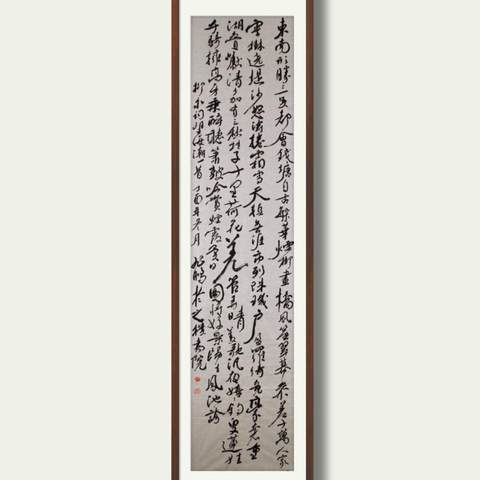 東南形勝三吳都會錢塘自古繁華煙柳畫橋風簾翠幕參差十萬人家
雲樹遶堤沙怒濤捲霜雪天塹無涯市列珠璣戶盈羅綺競豪奢重
湖疊巘清嘉有三秋桂子十里荷花羌管弄晴菱歌汎夜嬉嬉釣叟蓮娃
千騎擁高牙乘醉聽簫鼓吟賞煙霞異日圖將好景歸去鳳池誇
柳永詞望海潮一首 丁酉年 月 於之 書院